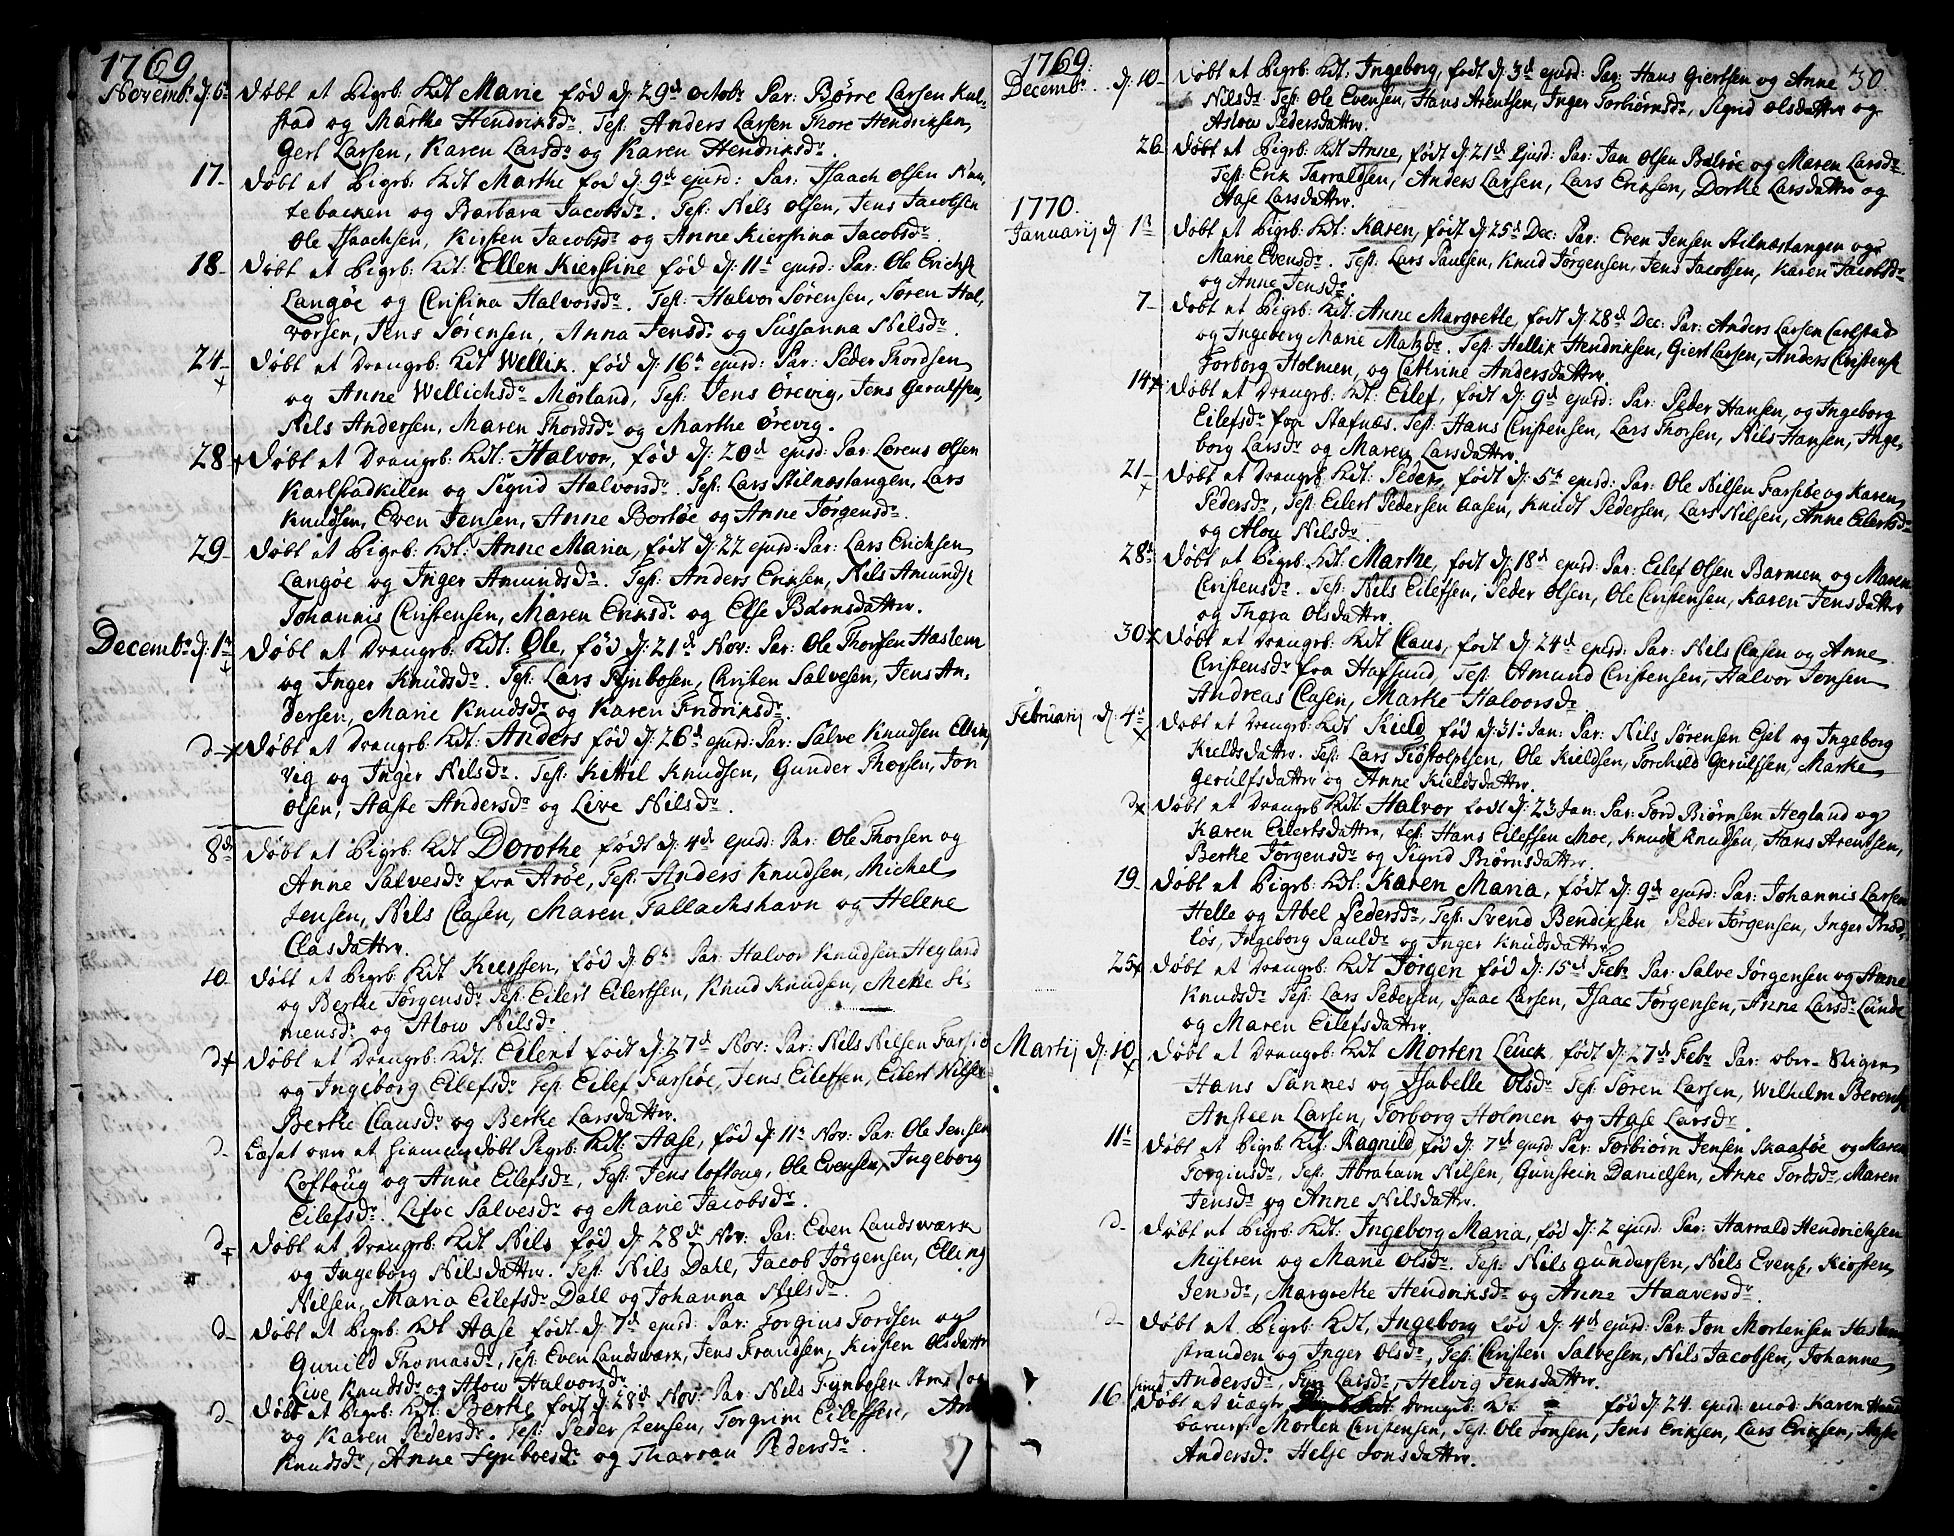 1769
Novembr d: 6t døbt et Pigeb: kdt Marie fød d: 29d octobr Par: Børre Larsen Kal-
stad og Marthe Hendriksdr. Test: Anders Larsen Thore Hendriksen,
Gert Larsen, Karen Larsdr og Karen Hendriksdr.
17 døbt et Pigeb: kdt Marthe fød d: 9d ejusd: Par: Isaach Olsen
tebacken og Barbara Jacobsdr. Test: Nils Olsen, Jens Jacobsen
Ole Isaachsen, Kirsten Jacobsdr og Anne Kierstina Jacobsdr.
18 døbt et Pigeb: kdt: Ellen Kierstine fød d: 11t ejusd: Par: Ole Erichse
Langøe og Cristina Halvorsdr. Test: Halvor Sørensen, Søren Hal,
vorsen, Jens Sørensen, Anna Jensdr og Sussanna Nilsdr.
24 døbt et Drengeb: kdt Wellik fød d: 16t ejusd: Par: Peder Thordsen
og Anne Wellichsdr Mørland, Test: Jens Ørevig, Jens Gerulfsen,
Nils Andersen, Maren Thordsdr og Marthe Ørevig.
28 døbt et Drengeb: kdt: Halvor, fød d: 20d ejusd: Par: Lorens Olsen
Karlstadkilen og Sigrid Halvorsdr. Test: Lars Stilnæstangen, Lars
Knudsen, Even Jensen, Anne Bortøe og Anne Jørgensdr.
29 døbt et Pigeb: kdt: Anne Maria, født d: 22 ejusd: Par: Lars Ericksen
Langøe og Inger Amundsdr. Test: Anders Eriksen, Nils Amundse
Johannis Cristensen, Maren Eriksdr og Else Biørnsdatter.
Decembr d: 1t døbt et Drengeb: kdt: Ole, fød d: 21d Nov: Par: Ole Thorsen Haslem
og Inger Knudsdr. Test: Lars Fynbosen, Cristen Salvesen, Jens An-
dersen, Marie Knudsdr og Karen Fridriksdr.
d- døbt et Drengeb: kdt: Anders fød d: 26d ejusd: Par: Salve Knudsen Elling
vig og Inger Nilsdr. Test: Kittil Knudsen, Gunder Thorsen, Jon
Olsen, Aaste Andersdr og Live Nilsdr.
8d døbt et Pigeb: kdt Dorothe født d: 4d ejusd: Par: Ole Thorsen og
Anne Salvesdr fra Arøe, Test: Anders Knudsen, Michel
Jensen, Nils Clasen, Maren Tallachshavn og Helene
Clasdatter.
10 døbt et Pigeb: kdt Kiersten, fød d: 6t Par: Halvor Knudsen Hegland
og Berthe Jørgensdr Test: Eilert Eilertsen, Knud Knudsen, Mette Si-
mensdr og Alow Nilsdr.
d døbt et Drengeb: kdt: Eilert født d: 27d Nov: Par: Nils Nilsen Farsiø
og Ingeborg Eilefsdr Test: Eilef Farsiøe, Jens Eilefsen, Eilert Nilsen
Berthe Clausdr og Berthe Larsdatter.
d- Læset over et hiemmedøbt Pigeb: kdt: Aase, fød d: 11t Nov: Par: Ole Jensen
Loftoug og Anne Eilefsdr, Test: Jens Loftoug, Ole Evensen, Ingeborg
Eilefsdr. Lifve Salvesdr og Marie Jacobsdr.
d- døbt et Drengeb: kdt Nils fød d: 28d Nov: Par: Even Landsværk
og Ingeborg Nilsdatter. Test: Nils Dahl, Jacob Jørgensen, Elling
Nilsen, Maria Eilefsdr Dall og Johanna Nilsdr.
d- døbt et Pigeb: kdt Aase født d: 7d ejusd: Par: Torgius Tordsen og
Gunild Thomasdr, Test: Even Landsværk, Jens Frandsen, Kirsten Olsdattr
Live Knudsdr og Alow Halvorsdr.
d- døbt et Pigeb: kdt: Berthe født d: 28d Nov: Par: Nils Fynbosen
og Karen Pedersdr. Test: Peder Jensen, Torgrim Eilefsen,
Knudsdr, Anne Fynboesdr og Tharran Pedersdr.
1769.
30.
Decembr. d: 10 døbt et Pigeb: kdt: Ingeborg, født d: 3d ejusd: Par: Hans Giertsen og Anne
Nilsdr Test: Ole Evensen, Hans Arentsen, Inger Torbiørnsdr, Sigrid Olsdatter og
Aslow Pedersdatter.
26 døbt et Pigeb: kdt Anne, født d: 21d Ejusd: Par: Jan Olsen Bolsøe og Maren Larsdr.
Test: Erik Tarraldsen, Anders Larsen, Lars Eriksen, Dorthe Larsdatter og
Aase Larsdatter.
1770.
Januarij d: 1t døbt et Pigeb: kdt: Karen, født d: 25d Dec: Par: Even Jensen Stilnæstangen og
Marie Evensdr. Test: Lars Paulsen, Knud Jørgensen, Jens Jacobsen, Karen Jacobsdr
og Anne Jensdr.
7 døbt et Pigeb: kdt: Anne Margrethe, født d: 28d Dec: Par: Anders Larsen Carlstad
og Ingeborg Marie Matzdr. Test: Hellik Hendriksen, Giert Larsen, Anders Cristense
Torborg Holmen, og Cathrine Andersdatter.
14 døbt et Drengeb: kdt: Eilef, født d: 9d ejusd: Par: Peder Hansen, og Ingeborg
Eilefsdr fra Stafnæs. Test: Hans Cristensen, Lars Thorsen, Nils Hansen, Inge,
borg Larsdr og Maren Larsdatter.
21 døbt et Drengeb: kdt: Peder, født d: 5t ejusd: Par: Ole Nilsen Farsiøe og Karen
Pedersdr, Test: Eilert Pedersen Aasen, Knudt Pedersen, Lars Nilsen, Anne Eilertsdr
og Alou Nilsdr.
28d døbt et Pigeb: kdt: Marthe, født d: 18d ejusd: Par: Eilef Olsen Barmen og Maren
Cristensdr. Test: Nils Eilefsen, Peder Olsen, Ole Cristensen, Karen Jensdatter
og Thora Olsdatter.
30 døbt et Drengeb: kdt Claus, født d: 24d ejusd: Par: Nils Clasen og Anne
Cristensdr fra Hafsund, Test: Amund Cristensen, Halvor Jensen
Andreas Clasen, Marthe Halvorsdr.
Februarij d: 4t døbt et Drengeb: kdt Kield fød d: 31t Jan: Par: Nils Sørensen Eset og Ingeborg
Kieldsdatter. Test: Lars Tiøstolfsen, Ole Kieldsen, Torchild Gerulfsen, Marthe
Gerulfsdatter og Anne Kieldsdatter.
d døbt et Drengeb: kdt: Halvor født d: 23 Jan: Par: Tord Biørnsen Hegland og
Karen Eilertsdatter, Test: Hans Eilefsen Moe, Knud Knudsen, Hans Arentsen,
Berthe Jørgensdr og Sigrid Biørnsdatter.
19 døbt et Pigeb: kdt: Karen Maria, født d: 9d ejusd: Par: Johannis Larsen
Helle og Abel Pedersdr, Test: Svend Bendixsen Peder Jørgensen, Inger
løs, Ingeborg Paulsdr og Inger Knudsdatter.
25 døbt et Drengeb: kdt Jørgen fød d: 15d Febr Par: Salve Jørgensen og Anne
Knudsdr Test: Lars Pedersen, Isaac Larsen, Isaac Jørgensen, Anne Larsdr Lunde
og Maren Eilefsdatter.
Martij d: 10 døbt et Drengeb: kdt Morten Leuch, født d: 27d Febr Par:
Hans Sannes og Isabelle Olsdr Test: Søren Larsen, Wilhelm Berents
Ansteen Larsen, Torborg Holmen og Aase Larsdr.
11t døbt et Pigeb: kdt: Ragnild fød d: 7d ejusd Par: Torbiørn Jensen Skaatøe og Maren
Torgiusdr, Test: Abraham Nilsen, Gunstein Danielsen, Anne Tordsdr, Maren
Jensdr og Anne Nilsdatter.
d- døbt et Pigeb: kdt: Ingeborg Maria, fød d: 2 ejusd: Par: Harrald Hendrichsen
Myhren og Marie Olsdr. Test: Nils Gundersen, Nils Evense, Kirsten
Jensdr, Margrethe Hendriksdr og Anne Haaversdr.
d- døbt et Pigeb: kdt, Ingeborg fød d: 4d ejusd: Par: Jon Mortensen Haslem
stranden og Inger Olsdr, Test: Cristen Salvesen, Nils Jacobsen, Johanne
Andersdr, Larsdr, Helvig Jensdatter.
16 døbt et uægte Drengeb: kdt fød d: 24. ejusd: mod: Karen
barnef: Morten Cristensen, Test: Ole Jonsen, Jens Eriksen, Lars Eriksen,
Andersdr Helje Jonsdatter.